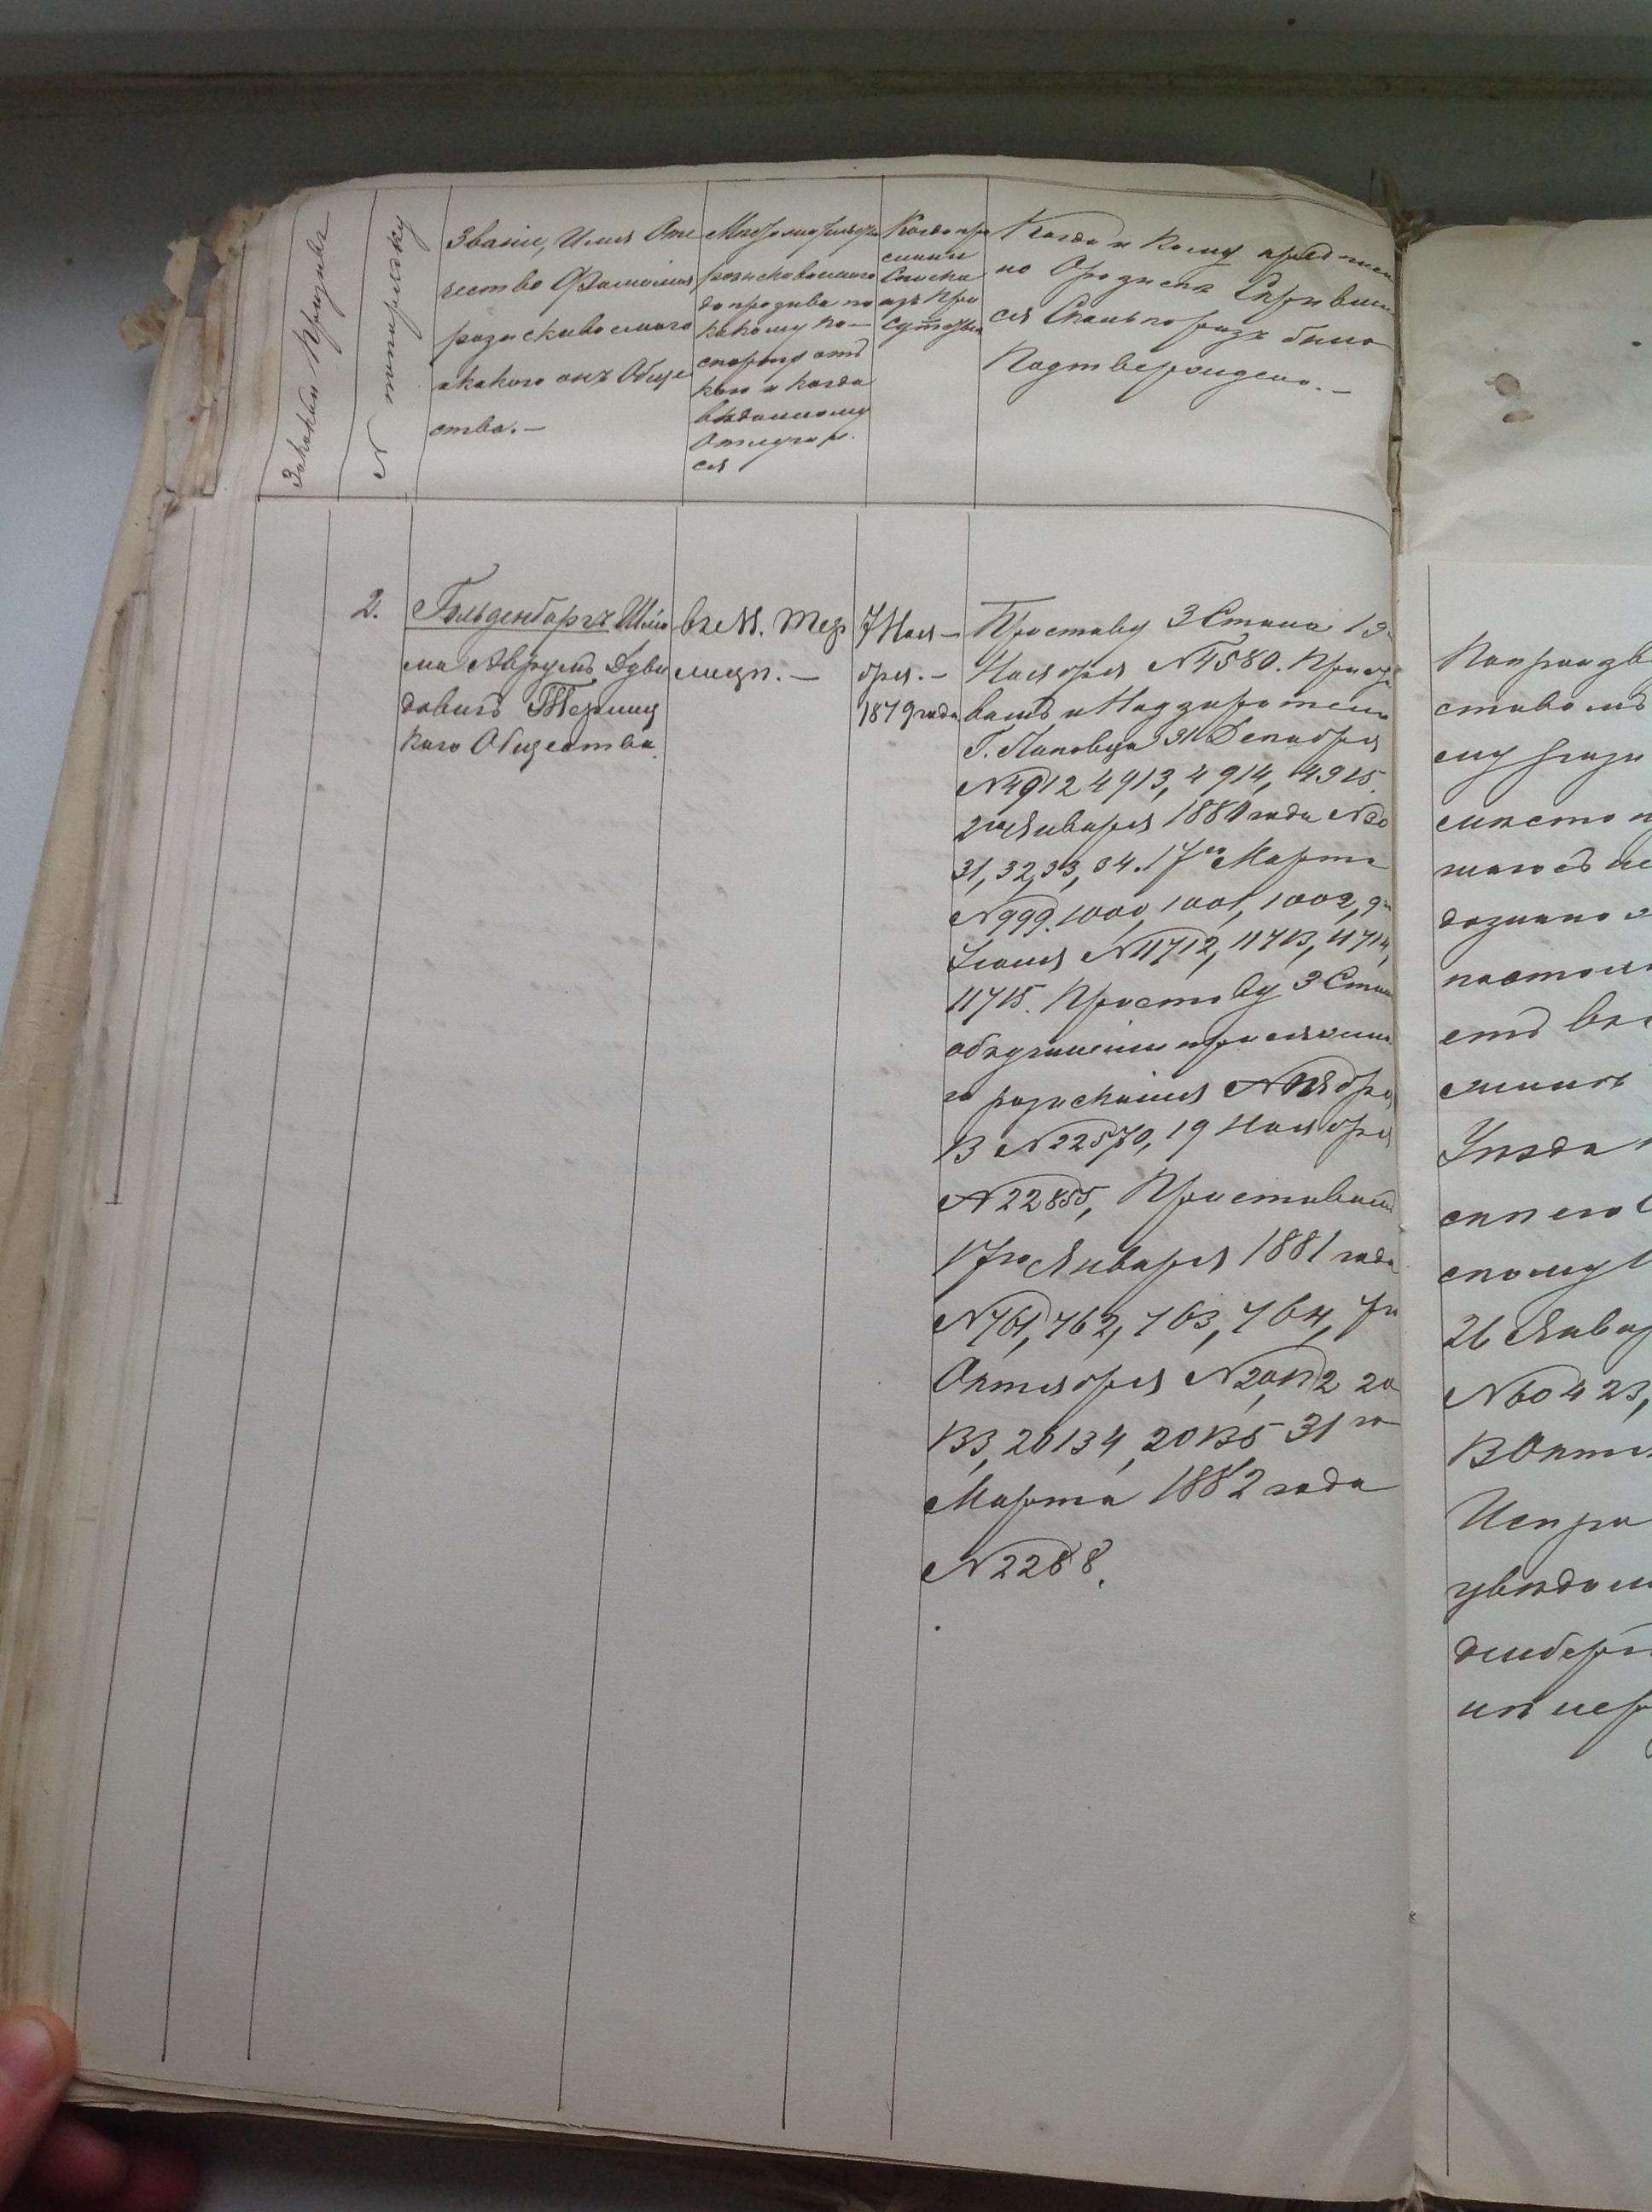 За какой Призывъ
№ попорядку
Званіе, Имя Оте
чество Фамилія
разыскиваемого
икакого онъ Обще
ства. —
Мѣстожительство
разыскиваемого
до призыва по
какому па-
спорту отъ
кого и когда
выданному
Отлучал
ся
Когда при
сланы
Списки
изъ При
сутствія
Когда и Кому предписа
но О розыскѣ Скрывш
ся Сколько разъ было
Подтверждено. —
2.
Гольденбергъ Шлио
ма Аврумъ Дуви
довичъ Теплиц
каго Общества.
въ М. Теп
лицѣ. —
7 Ноя-
бря. —
1879 года
Приставу 3 Стана 19
Ноября № 4580. Приста
вамъ и Надзирателю
Г. Липовца 31 Декабря
№ 4912 4913, 4914, 4915.
2го Января 1880 года № 30
31, 32, 33, 34. 17го Марта
№ 999. 1000, 1001, 1002, 9го
Іюля № 11712, 11713, 11714,
11715. Приставу 3 Стана
обучинении
розысканія Ноября
13 № 22570, 19 Ноября
№ 22855, Приставамъ
17го Января 1881 года
№ 761, 762, 763, 764, 7го
Октября № 20132 20
133, 20134, 20135 31го
Марта 1882 года
№ 2288.
ставомъ
ему
мѣсто
дознано
етъ
Уѣзда
26 Январ
№ 60423,
13 Октя
Испра
увѣдом